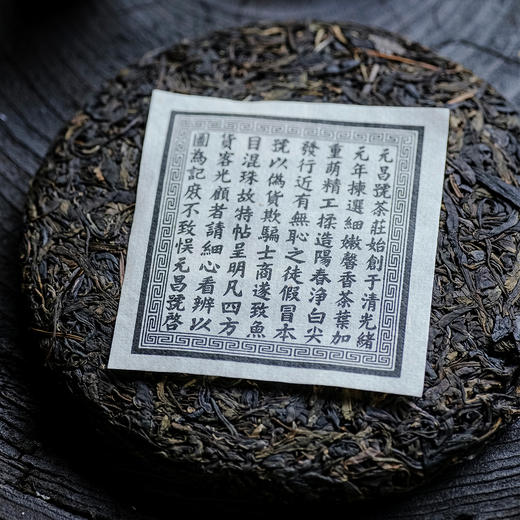 元昌號茶莊始創于清光緒
元年揀選細嫩馨香茶葉加
重萌精工揉造陽春净白尖
發行近有無恥之徒假冒本
號以偽貨欺騙士商遂致魚
目混珠故特帖呈明凡四方
貨客光顧者請細心看辨以
圖為記庻不致悮元昌號啓